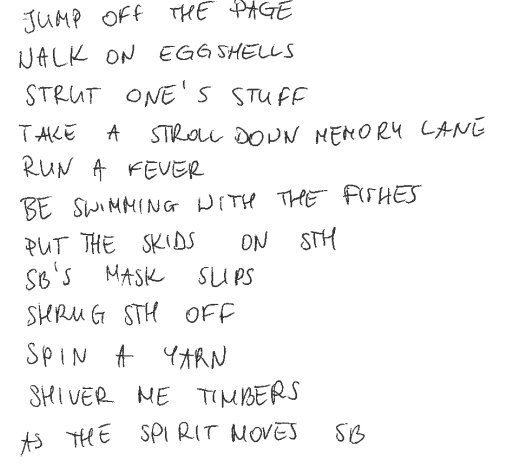 JUMP OFF THE PAGE
WALK ON EGGSHELLS
STRUT ONE'S STUFF
TAKE A STROLL DOWN MEMORY LANE
RUN A FEVER
BE SWIMMING WITH THE FISHES
PUT THE SKIDS ON STH
SB'S MASK SLIPS
SHRUG STH OFF
SPIN A YARN
SHIVER ME TIMBERS
AS THE SPIRIT MOVES SB